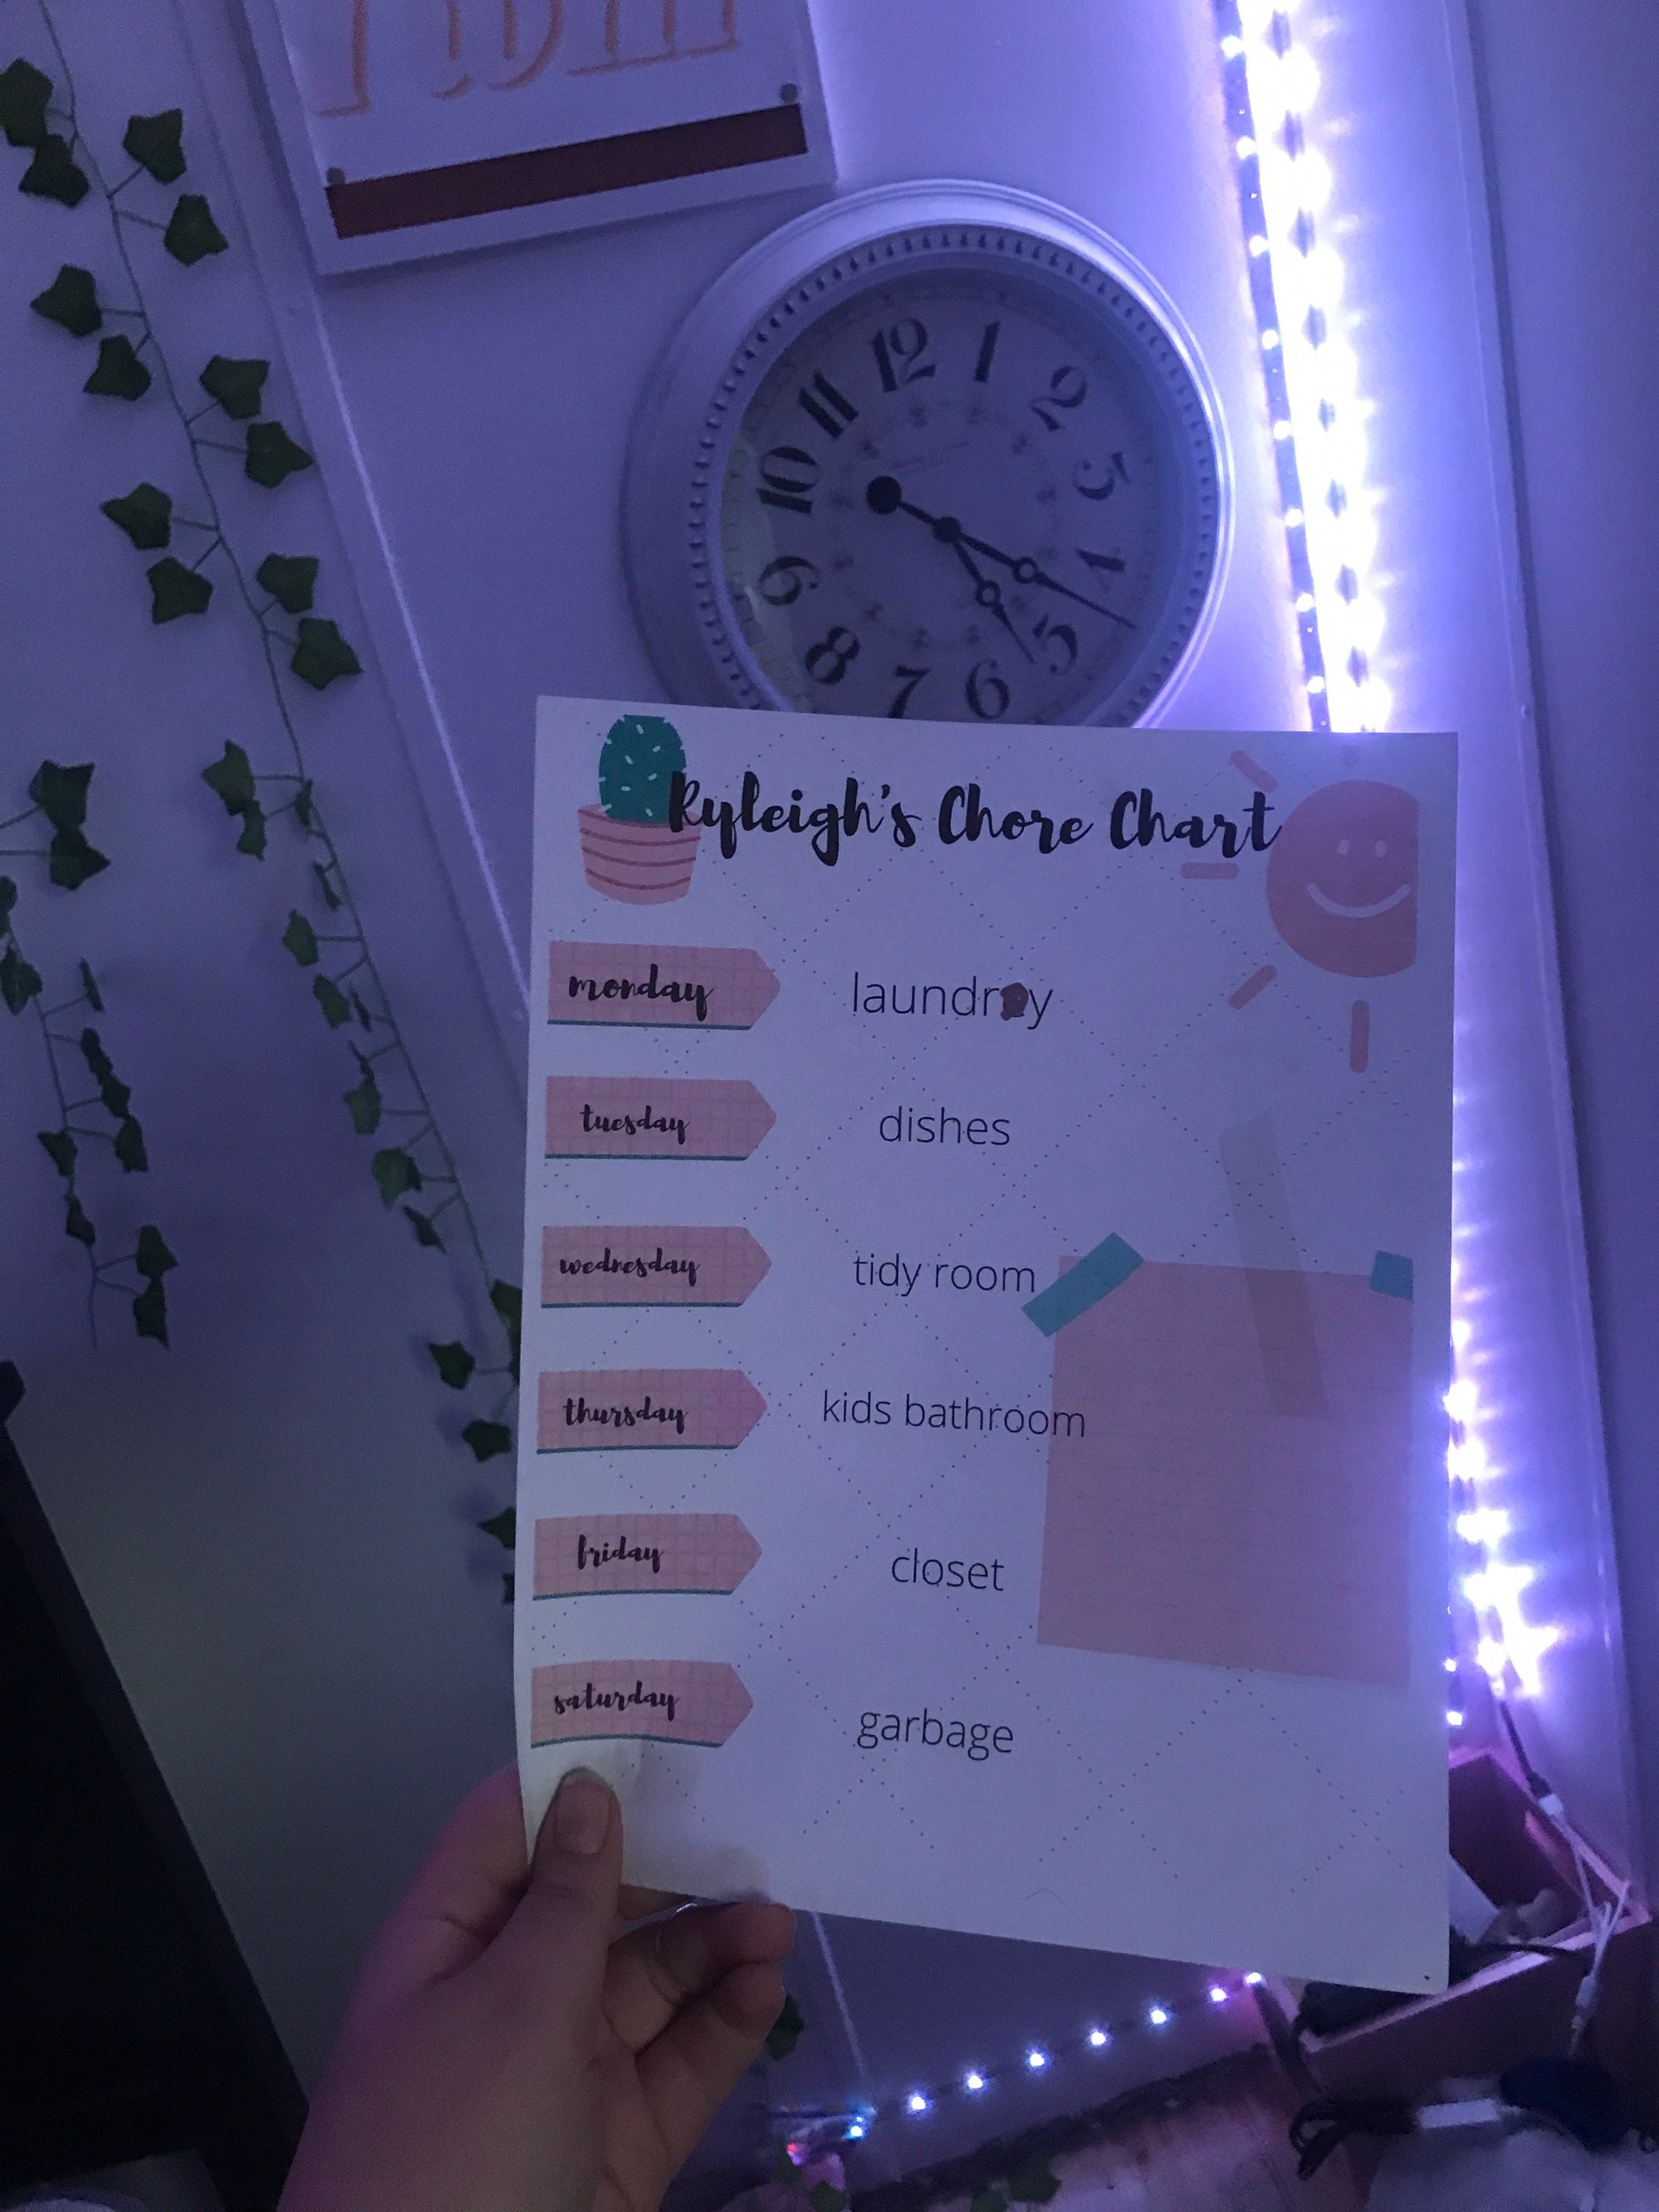 12
1
2
3
4
5
6
7
8
9
10
11
Ryleigh's Chore Chart
monday laundry
tuesday dishes
wednesday tidy room
thursday kids bathroom
friday closet
saturday garbage